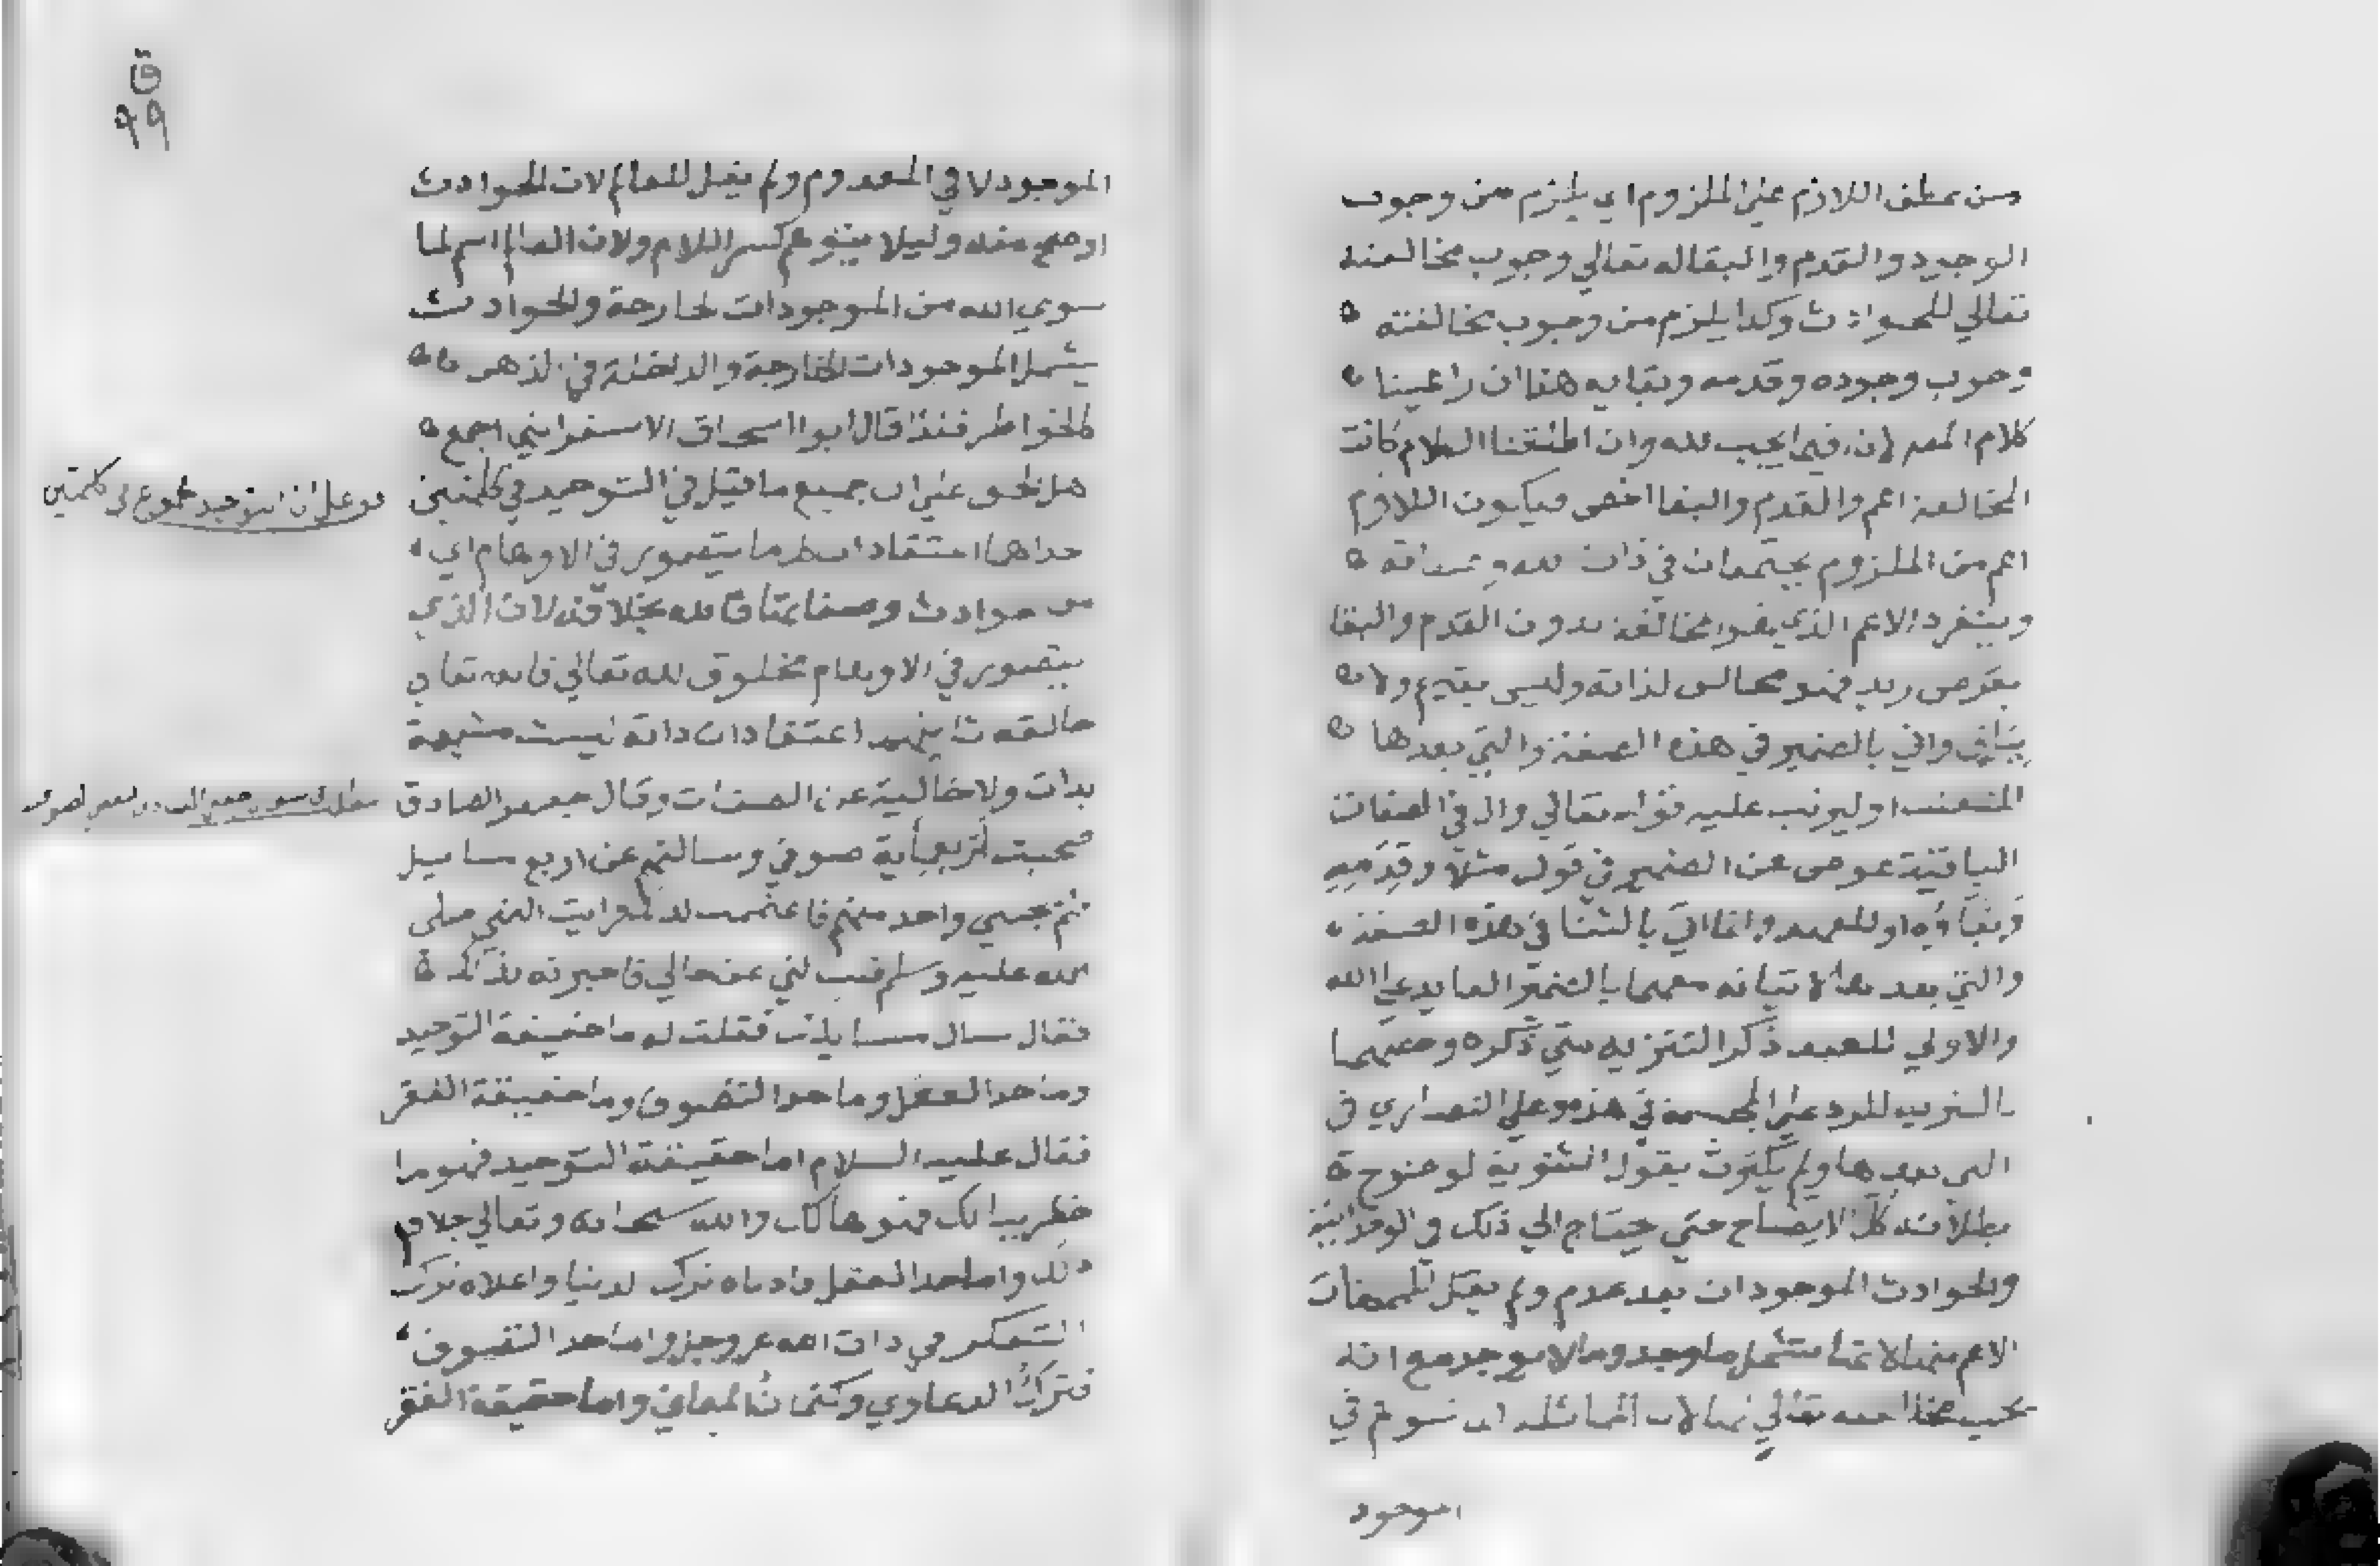 من عطف اللازم علي الملزوم اي يلزم من وجوب
الوجود والقدم والبقاله تعالي وجوب مخالفته
تعالي للحوادث وكدا يلزم من وجوب مخالفته
وجوب وجوده وقدمه وبقايه هذا ان راعينا
كلام المص لان فيما يجب لله وان اطلقنا الكلام كانت
المخالفة اعم والقدم والبقا اخص فيكون اللازم
اعم من الملزوم يجتمعان في ذات الله وصفاته
وينفرد الاعم الذي هو المخالفة بدون القدم والبقا
بعرض زيد فهو مخالف لذاته وليس بقديم ولا
بباقي واتي بالضمير في هذه الصفة والتي بعدها
اوليونب عليه قوله تعالي وال في الصفات
الباقية عوض عن الضمير في قوله مثلا وقدمه
وبقاؤه او للعهد وانما اتي بالثنا في هذه الصفة
والتي بعدها لاتيانه معهما بالضمير العايد علي الله
والاولي للعبد ذكر التنزيه متي ذكره وخصهما
بالتنزيه للرد علي المجسمة في هذه وعلي النصاري في
التي بعدها ولم يكترث بقول الثنوية لوضوح
بطلانه كل الايضاح حتي يحتاج الي ذلك في الوحدانية
والحوادث الموجودات بعد عدم ولم يقل للممكنات
الاعم منها لانها تشمل ما وجد وما لا يوجد مع انه
يجب مخالفته تعالي لها لان المماثلة انما تتوهم في
الموجود
ق
٩٩
الموجود لا في المعدوم ولم يقل للعالم لان الحوادث
اوضح منه وليلا يتوهم كسر اللام ولان العالم اسم لما
سوي الله من الموجودات الخارجة والحوادث
يشمل الموجودات الخارجة والداخلة في الذهن
كالخواطر فلذا قال ابوا اسحاق الاسفرايني اجمع
هل الحق علي ان جميع ما قيل في التوحيد في كلمتين
احداهما اعتقاد ان كل ما يتصور في الاوهام اي
من حوادث وصفاتها فالله بخلافه لان الذي
يتصور في الاوهام مخلوق لله تعالي فالله تعالي
خالقه ثانيهما اعتقاد ان ذاته ليست مشبهة
بذات ولا خالية عن الصفات وقال جعفر الصادق
صحبت اربعماية صوفي وسالتهم عن اربع مسايل
فلم يجبني واحد منهم فاغتممت لذلك فرايت النبي صلى
الله عليه وسلم فسالني عن حالي فاخبرته بذلك
فقال سال مسايلك فقلت له ما حقيقة التوحيد
وما حد العقل وما حد التصوف وما حقيقة الفقر
فقال عليه السلام اما حقيقة التوحيد فهو ما
خطر ببالك فهو هالك والله سبحانه وتعالي بخلاف
ذلك واما حد العقل فادناه ترك الدنيا واعلاه ترك
التفكر في ذات الله عز وجل واما حد التصوف
فترك الدعاوي وكتمان المعاني واما حقيقة الفقر
قوعلي ان التوحيد مجموع في كلمتين